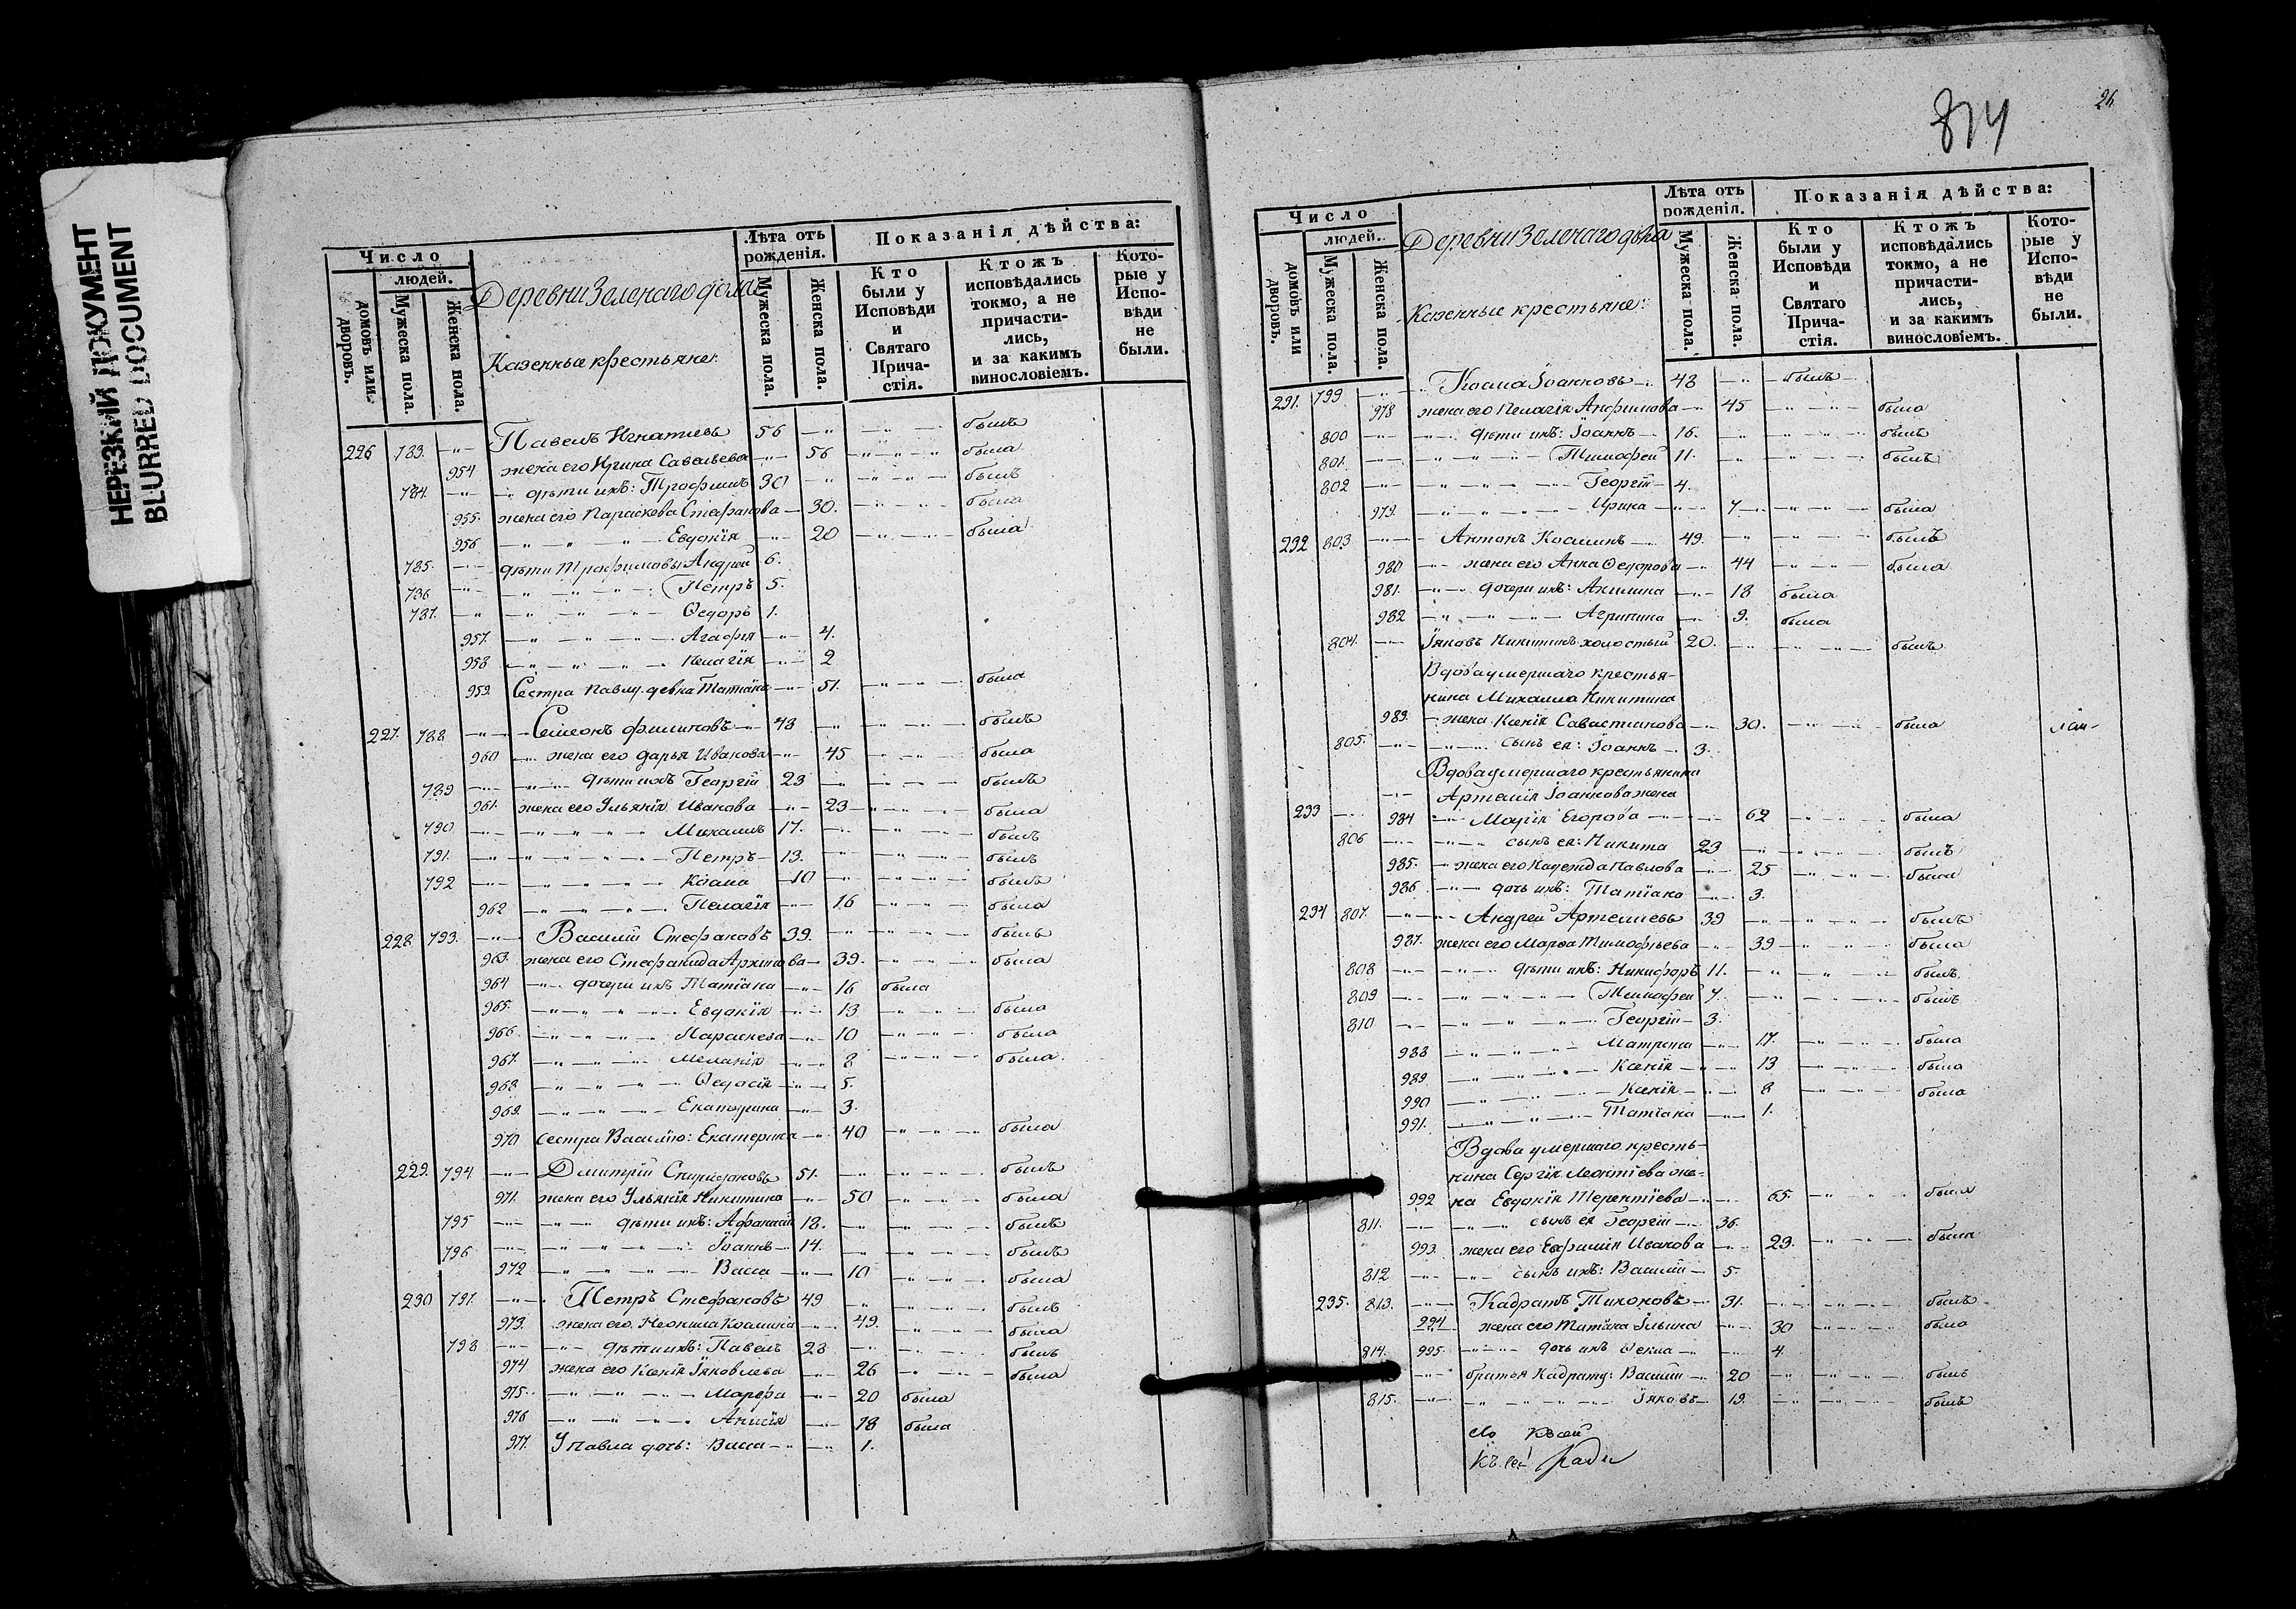 НЕРЕЗКИЙ ДОКУМЕНТ
BLURRED DOCUMENT
Число
людей.
домовъ или дворовъ.
Мужеска пола.
Женска пола.
Деревни Зеленаго дола
Казенные крестьяне:
Лѣта отъ рожденія.
Мужеска пола.
Женска пола.
Показанія дѣйства:
Кто были у Исповѣди и Святаго Прича- стія.
Ктожъ исповѣдались токмо, а не причасти- лись, и за какимъ винословіемъ.
Кото- рые у Испо- вѣди не были.
226 783. Павелъ Игнатьевъ 56 былъ
954 жена его Ирина Савельева 56 была
784. дѣти ихъ: Трофимъ 30 былъ
955. жена его Параскева Стефанова 30. была
956 Евдокія 20 была
785. дѣти Трофимовы Андрей 6.
786 Петръ 5.
787. Ѳедоръ 1.
957. Агафія 4.
958 Пелагія 2
959. Сестра Павлу девка Татіана 51. была
227. 788 Сѵмеонъ Филиповъ 48 былъ
960 жена его Дарья Иванова 45 была
789 дѣти ихъ Георгій 23 былъ
961. жена его Ульянія Иванова 23 была
790 Михаилъ 17. былъ
791. Петръ 13. былъ
792 Косма 10 былъ
962 Пелагія 16 была
228 793. Василій Стефановъ 39. былъ
963. жена его Стефанида Архипова 39. была
964 дочери ихъ Татіана 16 была
965. Евдокія 13 была
966. Параскева 10 была
967. Меланія 8 была
968 Ѳедосія 5.
969. Екатерина 3.
970 сестра Василію: Екатерина 40 была
229. 794 Дмитрій Спиридоновъ 51. былъ
971. жена его Ульянія Никитина 50 была
795 дѣти ихъ: Афанасій 18. былъ
796 Іоаннъ 14. былъ
972 Васса 10 была
230 797. Петръ Стефановъ 49 былъ
973. жена его Неонила Космина 49. была
798 дѣти ихъ: Павелъ 23 былъ
974 жена его Ксенія Іяковлева 26 была
975. Марфа 20 была
976 Анисія 18 была
977. У Павла дочь: Васса 1.
814
26
Число
людей.
домовъ или дворовъ.
Мужеска пола.
Женска пола.
Деревни Зеленаго дола
Казенные крестьяне:
Лѣта отъ рожденія.
Мужеска пола.
Женска пола.
Показанія дѣйства:
Кто были у Исповѣди и Святаго Прича- стія.
Ктожъ исповѣдались токмо, а не причасти- лись, и за какимъ винословіемъ.
Кото- рые у Испо- вѣди не были.
231. 799 Косма Іоанновъ 48 былъ
978 жена его Пелагія Анфимова 45 была
800 дѣти ихъ: Іоаннъ 16. былъ
801. Тимофей 11. былъ
802 Георгій 4.
979. Ирина 7 была
232 803. Антонъ Косминъ 49. былъ
980 жена его Анна Ѳедорова 44 была
981. дочери ихъ: Акилина 18 была
982 Агрипина 9. была
804. Іяковъ Никитинъ холостый 20. былъ
Вдова умершаго крестья-
нина Михаила Никитина
983. жена Ксенія Савастианова 30. была
805. сынъ ея: Іоаннъ 3.
Вдова умершаго крестьянина
Артемія Іоаннова жена
233 984 Марія Егорова 62 была
806 сынъ ея: Никита 23 былъ
985. жена его Надежда Павлова 25 была
986 дочь ихъ: Татіана 3.
234 807. Андрей Артемьевъ 39 былъ
987. жена его Марѳа Тимофѣева 39 была
808 дѣти ихъ: Никифоръ 11. былъ
809 Тимофей 7. былъ
810 Георгій 3.
988 Матрена 17. была
989. Ксенія 13 была
990 Ксенія 8 была
991. Татіана 1.
Вдова умершаго кресть-
нина Сергія Леонтіева же-
992 на Евдокія Терентіева 65 была
811. сынъ ея Георгій 36.
993. жена его Евфимія Иванова 23. была
812 сынъ ихъ: Василій 5.
235. 813. Кадратъ Тихоновъ 31. былъ
994 жена его Татіана Ильина 30 была
814. 995. дочь ихъ Ѳекла 4.
братья Кадрату: Василій 20 былъ
815. Іяковъ 19. былъ